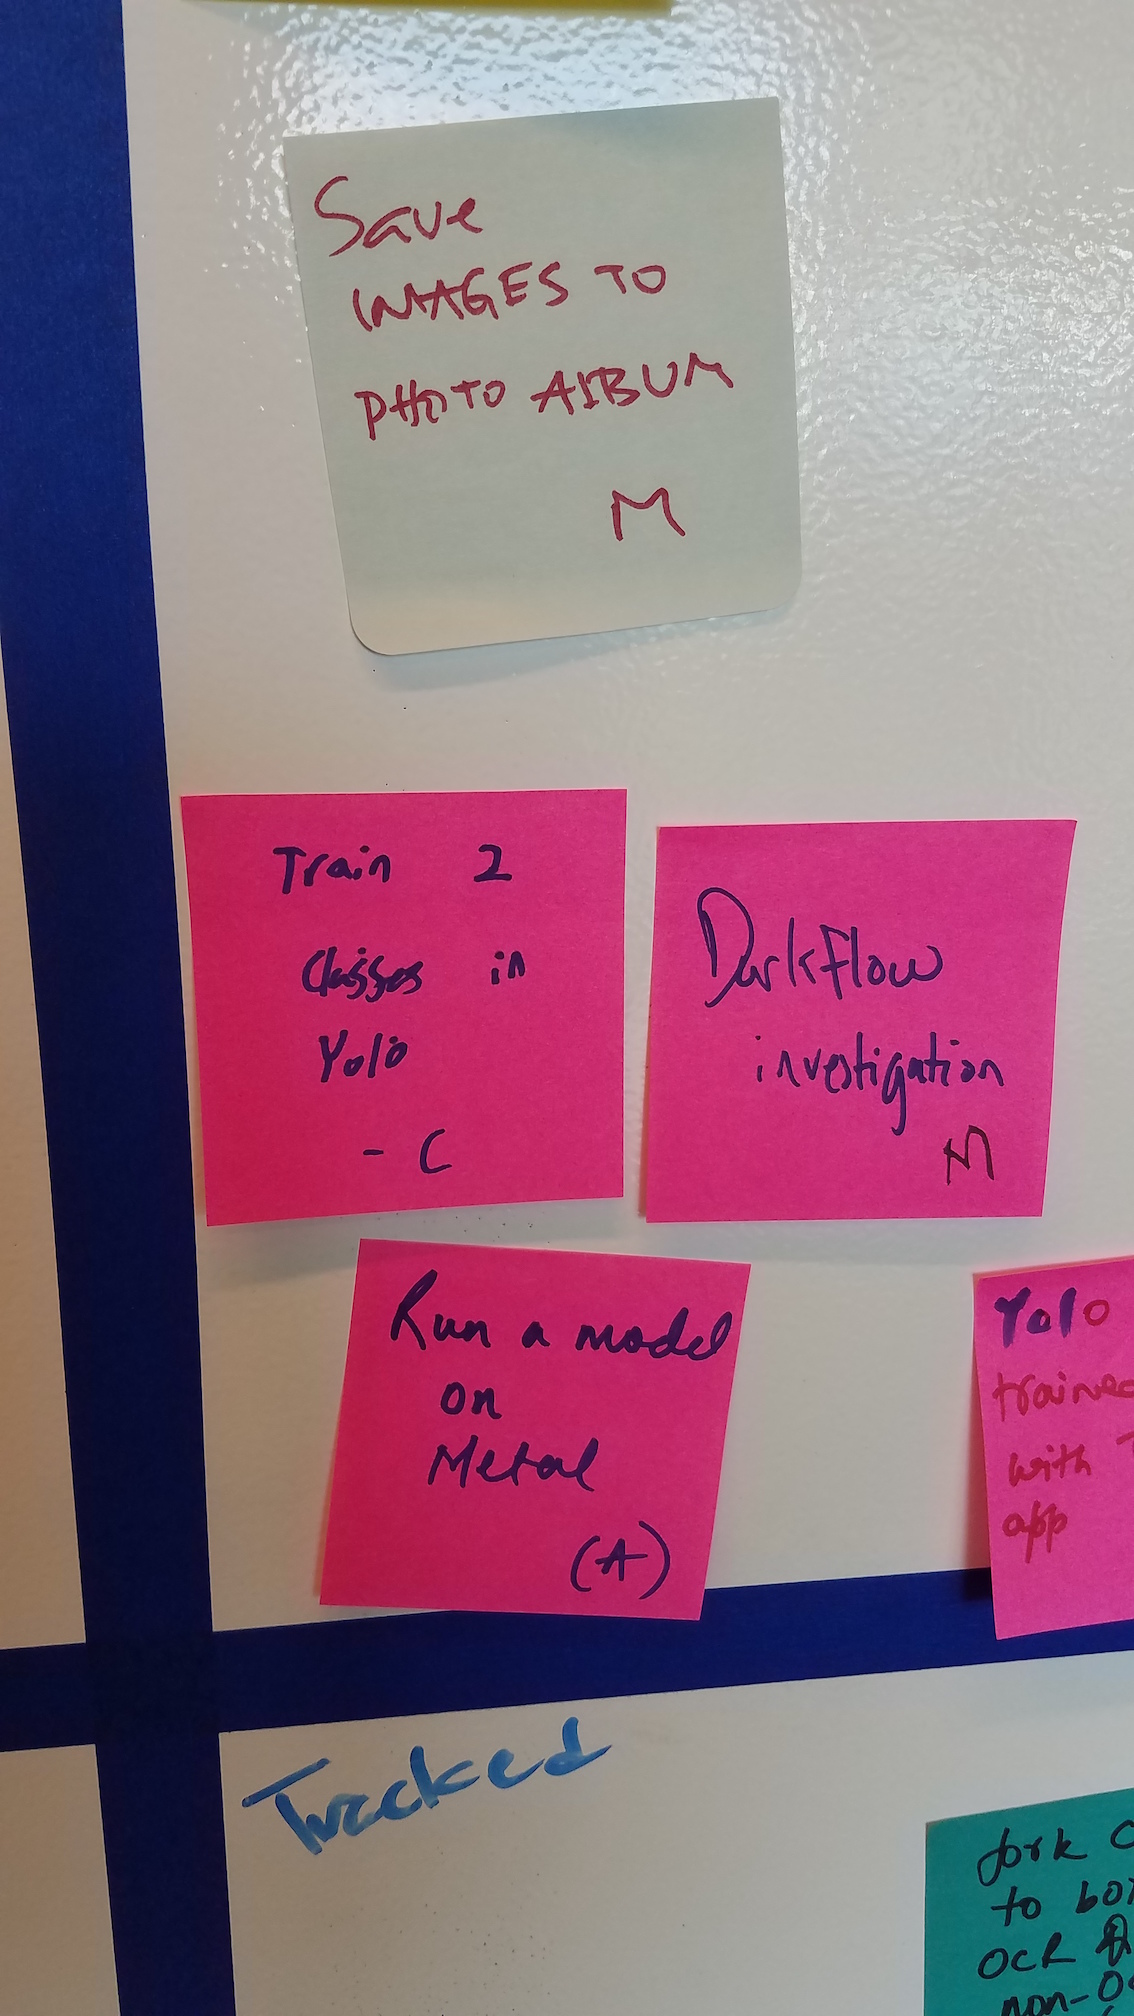 Save
IMAGES TO
PHOTO ALBUM
M
Train 2
Classes in
Yolo
- C
Darkflow
investigation
M
Run a model
on
Metal
(A)
Yolo
trained
with
app
Tracked
fork
to
OCR